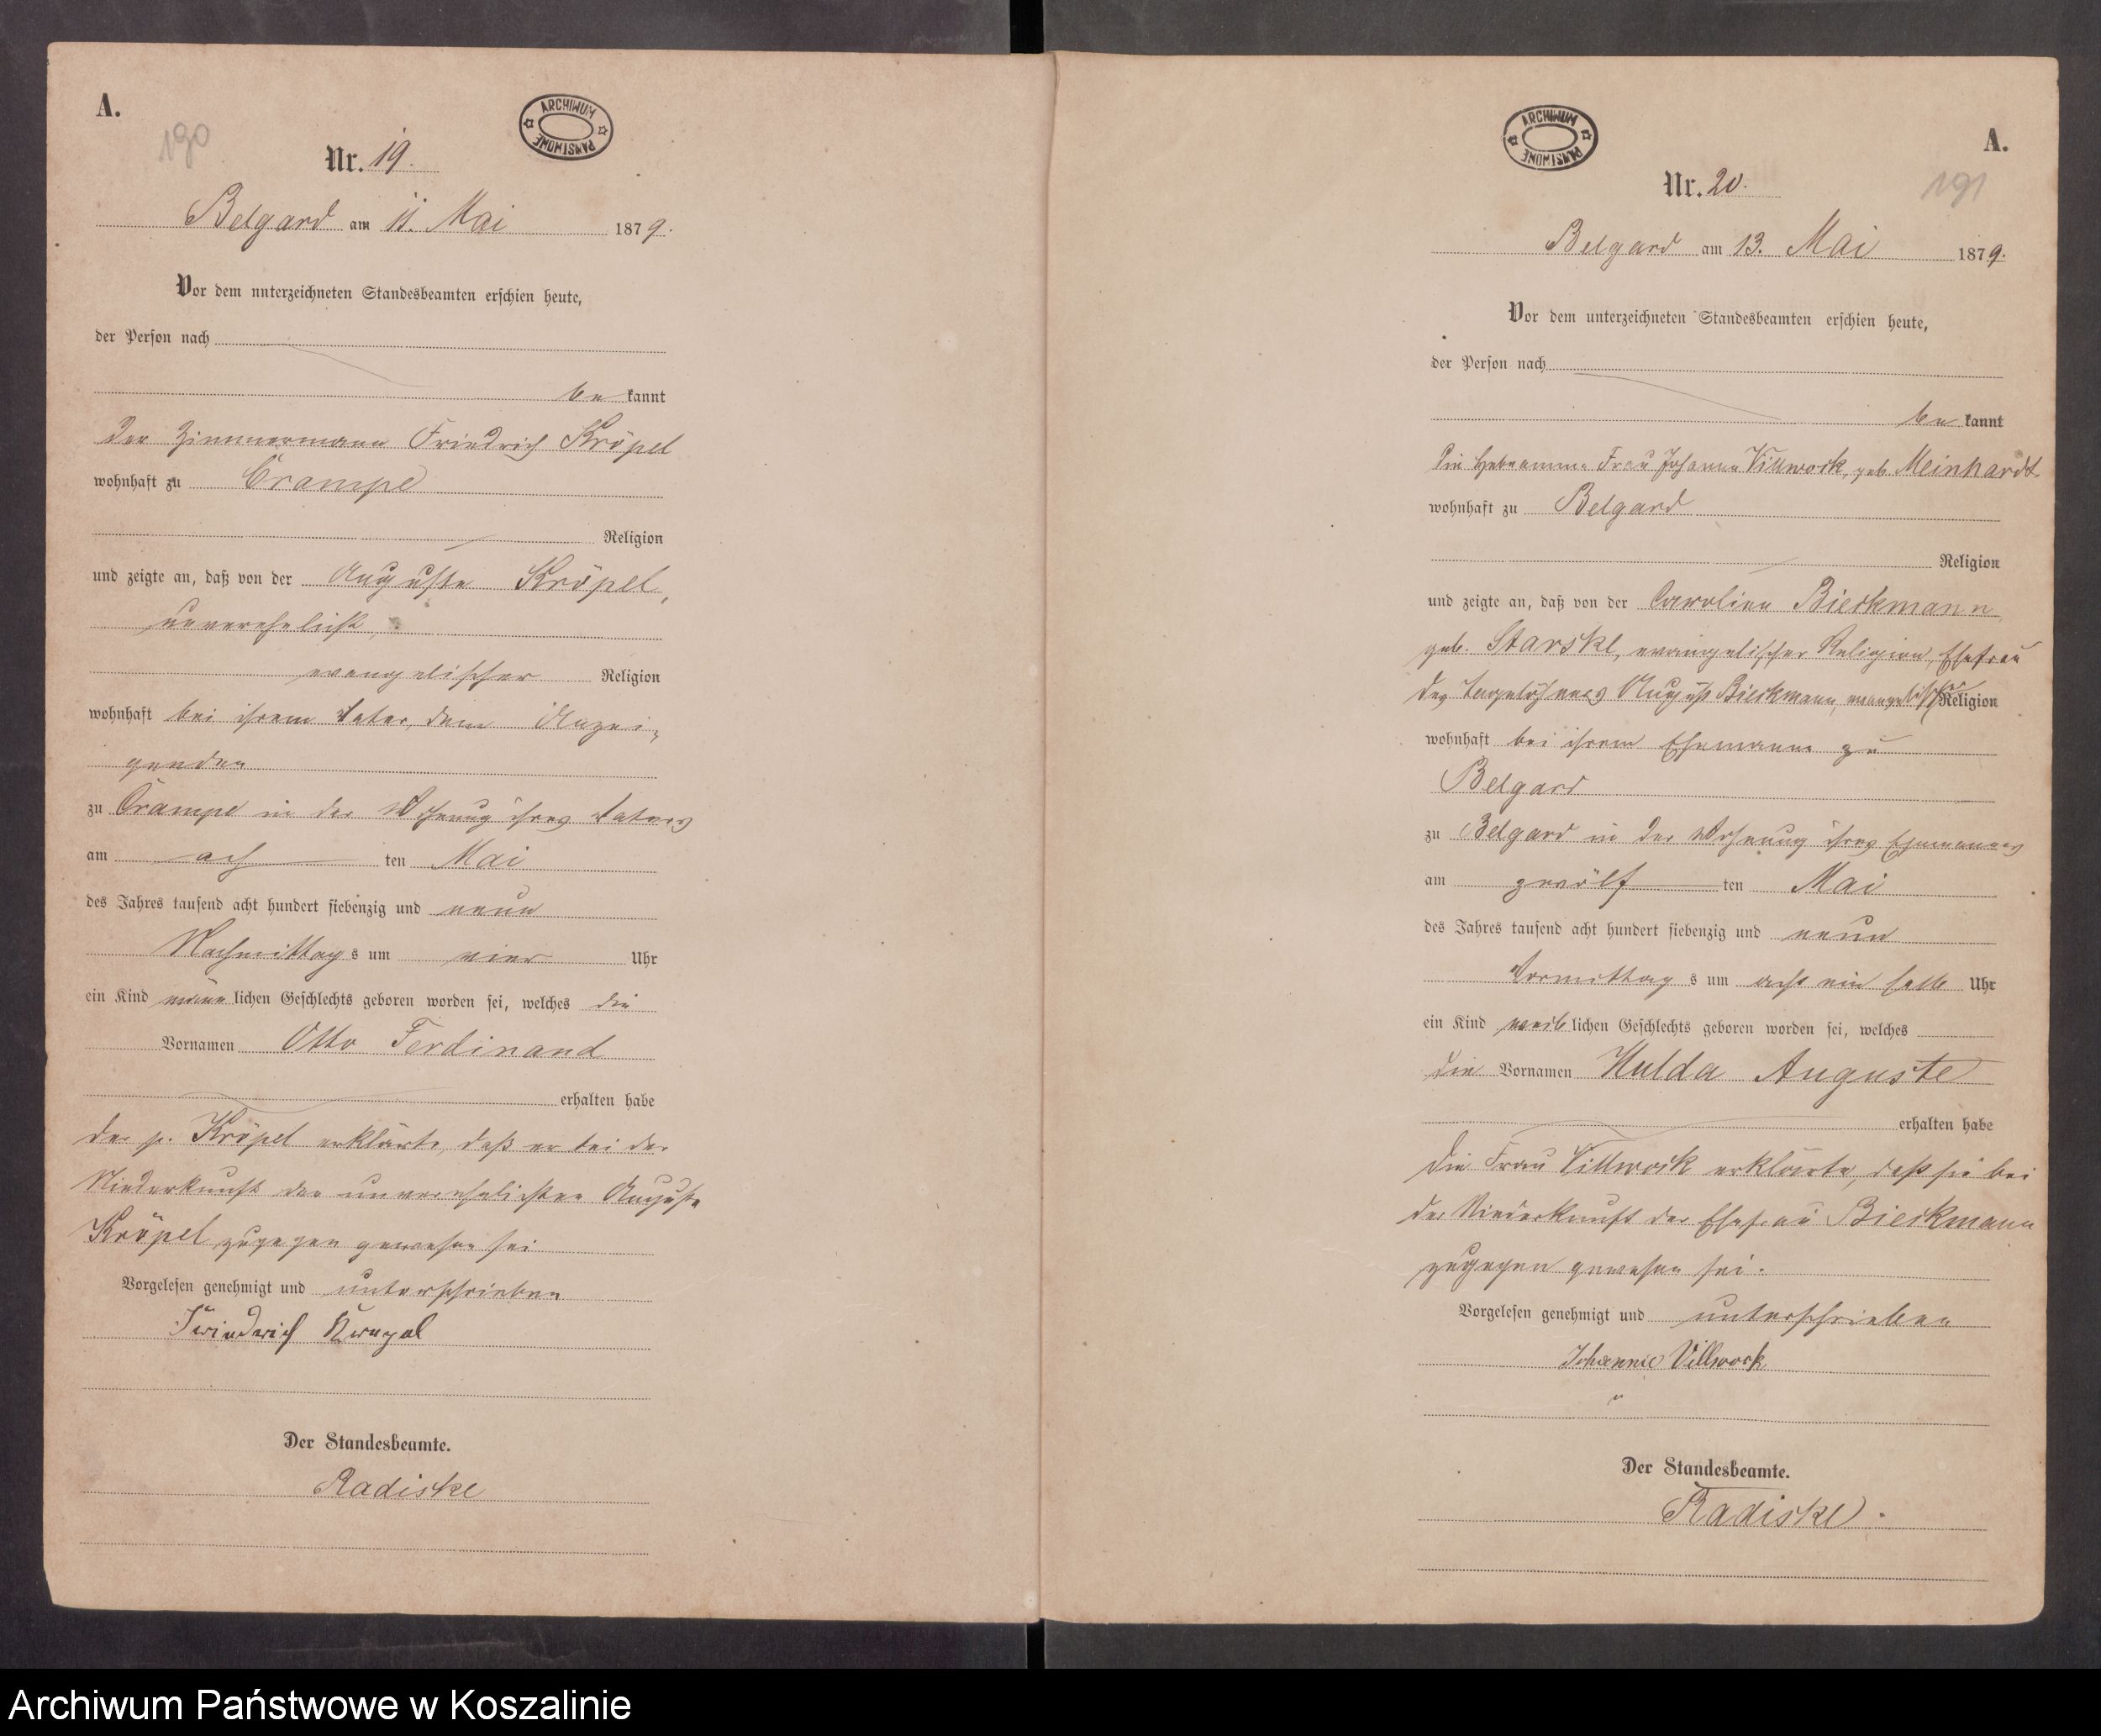 A.
190
ARCHIWUM PAŃSTWOWE
Nr. 19.
Belgard am 11. Mai 1879.
Vor dem unterzeichneten Standesbeamten erschien heute,
der Person nach
be kannt
der Zimmermann Friedrich Kröpel
wohnhaft zu Crampe
Religion
und zeigte an, daß von der Auguste Kröpel,
unverehelicht,
evangelischer Religion
wohnhaft bei ihrem Vater, dem Anzei-
genden
zu Crampe in der Wohnung ihres Vaters
am ach ten Mai
des Jahres tausend acht hundert siebenzig und neun
Nachmittag s um vier Uhr
ein Kind männ lichen Geschlechts geboren worden sei, welches die
Vornamen Otto Ferdinand
erhalten habe
der p. Kröpel erklärte, daß er bei der
Niederkunft der unverehelichten Auguste
Kröpel zugegen gewesen sei
Vorgelesen genehmigt und unterschrieben
Friedrich Krepel
Der Standesbeamte.
Radiske
A.
191
ARCHIWUM PAŃSTWOWE
Nr. 20.
Belgard am 13. Mai 1879.
Vor dem unterzeichneten Standesbeamten erschien heute,
der Person nach
be kannt
die Hebeamme Frau Johanna Villwock, geb. Meinhardt
wohnhaft zu Belgard
Religion
und zeigte an, daß von der Caroline Bieckmann
geb. Starske, evangelischer Religion, Ehefrau
des Tagelöhners August Bieckmann, evangelischer Religion
wohnhaft bei ihrem Ehemanne zu
Belgard
zu Belgard in der Wohnung ihres Ehemannes
am zwölf ten Mai
des Jahres tausend acht hundert siebenzig und neun
Vormittag s um acht ein halb Uhr
ein Kind weib lichen Geschlechts geboren worden sei, welches
die Vornamen Hulda Auguste
erhalten habe
Die Frau Villwock erklärte, daß sie bei
der Niederkunft der Ehefrau Bieckmann
zugegen gewesen sei.
Vorgelesen genehmigt und unterschrieben
Johanne Villwock
Der Standesbeamte.
Radiske.
Archiwum Państwowe w Koszalinie